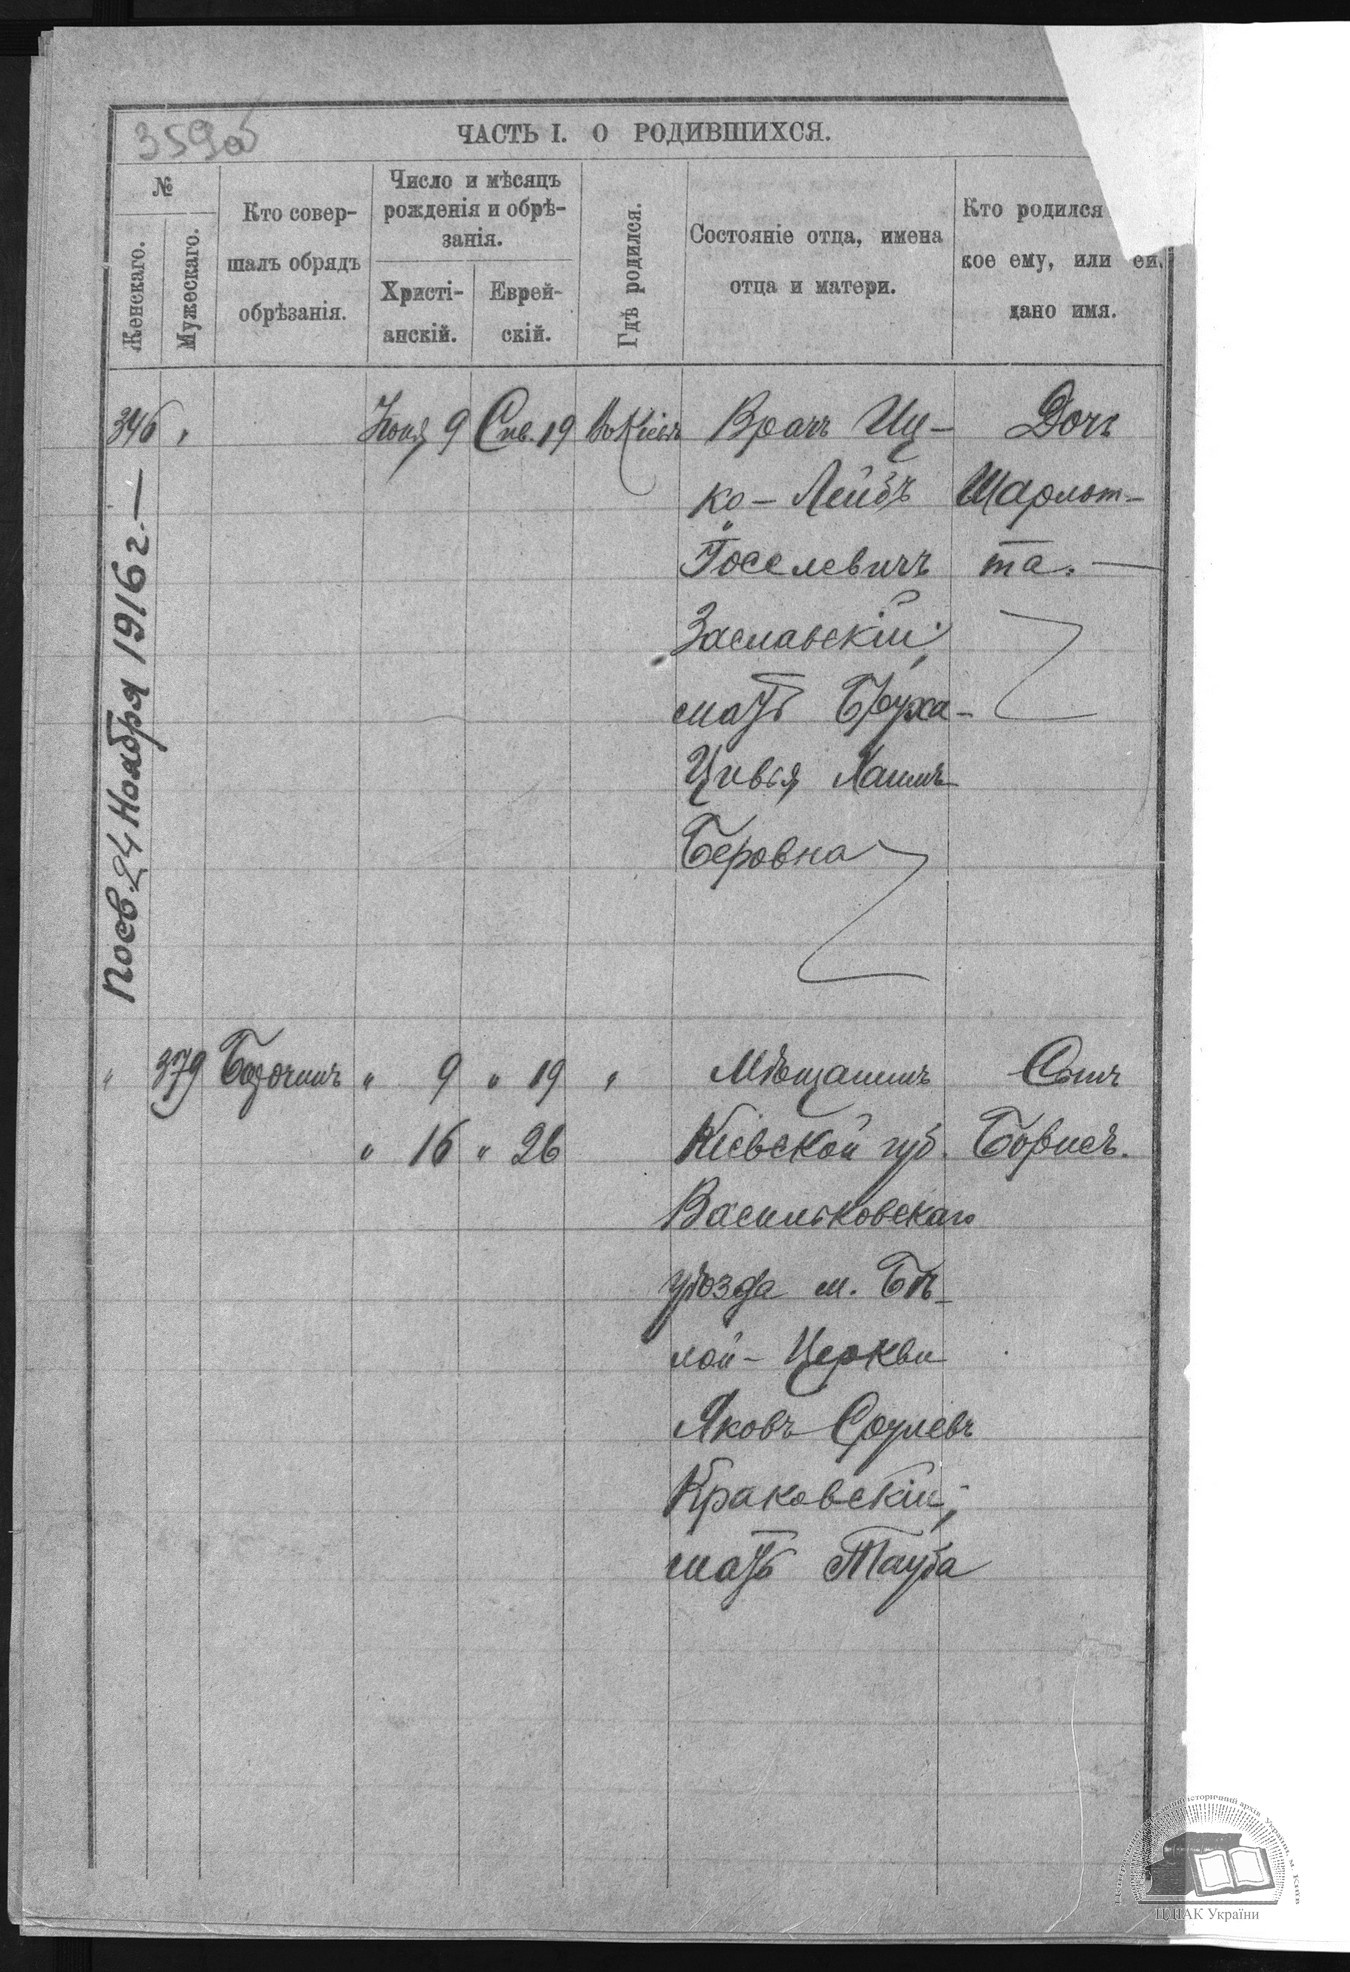 359об
ЧАСТЬ I. О РОДИВШИХСЯ.
№
Женскаго.
Мужескаго.
Кто совер-
шалъ обрядъ
обрѣзанія.
Число и мѣсяцъ
рожденія и обрѣ-
занія.
Христі-
анскій.
Еврей-
скій.
Гдѣ родился.
Состояніе отца, имена
отца и матери.
Кто родился
кое ему, или ей,
дано имя.
346 " 9 19 Врачъ Иц-
ко-Лейбъ
Іоселевичъ
Заславскій;
мать Бруха-
Цивья Хаимъ-
Беровна
Дочь
Шарлот-
та.—
Посв. 24 Ноября 1916 г.—
" 379 " 9 " 19 " Мѣщанинъ
" 16 " 26 Кіевской губ.
Васильковскаго
уѣзда м. Бѣ-
лой-Церкви
Яковъ Срулевъ
Краковскій;
мать Тауба
Сынъ
Борисъ.
ЦДІАК України